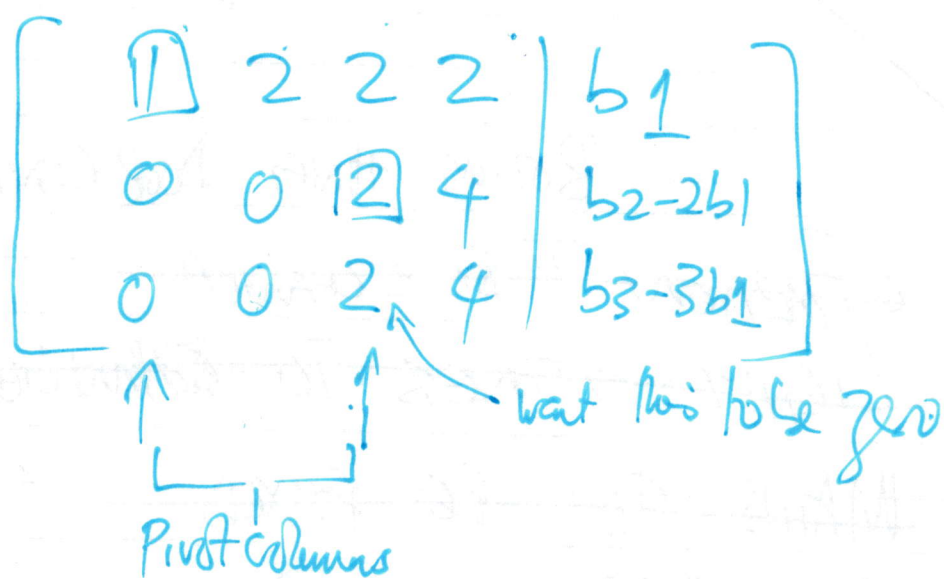 1 2 2 2 | b1
0 0 2 4 | b2-2b1
0 0 2 4 | b3-3b1
want this to be zero
Pivot columns